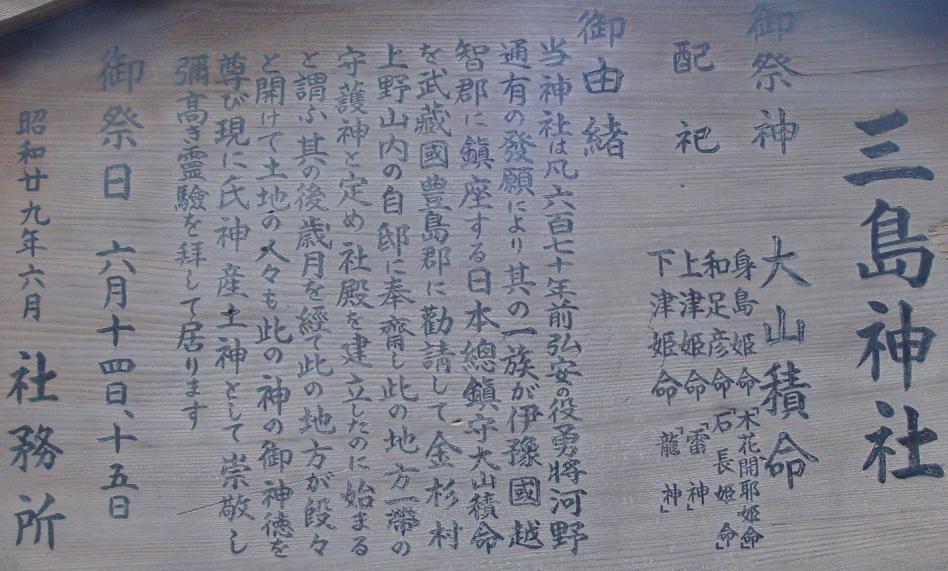 三島神社
御祭神　大山積命
身島姫命「木花開耶姫命」
配祀　和足彦命「石長姫命」
上津姫命「雷神」
下津姫命「龍神」
御由緒
当神社は凡六百七十年前弘安の役勇將河野
通有の發願により其の一族が伊豫國越
智郡に鎭座する日本總鎭守大山積命
を武藏國豊島郡に勸請して金杉村
上野山内の自邸に奉齋し此の地方一帶の
守護神と定め社殿を建立したのに始まる
と謂ふ其の後歳月を経て此の地方が段々
と開けて土地の人々も此の神の御神徳を
尊び現に氏神産土神として崇敬し
彌高き靈驗を拝して居ります
御祭日　六月十四日、十五日
昭和廿九年六月　社務所